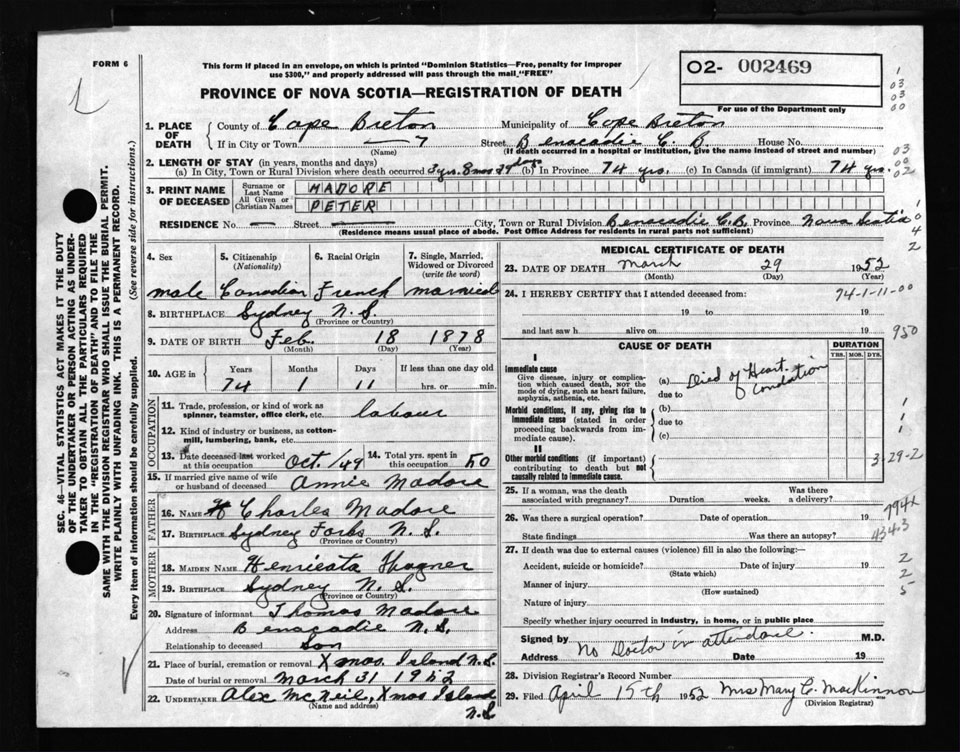 FORM 6
This form if placed in an envelope, on which is printed "Dominion Statistics—Free, penalty for improper
use $300," and properly addressed will pass through the mail "FREE"
O2- 002469
For use of the Department only
PROVINCE OF NOVA SCOTIA—REGISTRATION OF DEATH
1. PLACE OF DEATH
County of Cape Breton Municipality of Cape Breton
If in City or Town (Name) Street Benacadie C. B. House No.
(If death occurred in a hospital or institution, give the name instead of street and number)
2. LENGTH OF STAY (in years, months and days)
(a) In City, Town or Rural Division where death occurred 3 yrs. 8 mos 29 days (b) In Province 74 yrs. (c) In Canada (if immigrant) 74 yrs.
3. PRINT NAME OF DECEASED
Surname or Last Name MADORE
All Given or Christian Names PETER
RESIDENCE No — Street — City, Town or Rural Division Benacadie C.B. Province Nova Scotia
(Residence means usual place of abode. Post Office Address for residents in rural parts not sufficient)
4. Sex 5. Citizenship (Nationality) 6. Racial Origin 7. Single, Married, Widowed or Divorced (write the word)
male Canadian French married
8. BIRTHPLACE Sydney N. S.
(Province or Country)
9. DATE OF BIRTH Feb. 18 1878
(Month) (Day) (Year)
10. AGE in Years Months Days If less than one day old
74 1 11 hrs. or min.
OCCUPATION
11. Trade, profession, or kind of work as spinner, teamster, office clerk, etc. labour
12. Kind of industry or business, as cotton-mill, lumbering, bank, etc.
13. Date deceased last worked at this occupation Oct./49 14. Total yrs. spent in this occupation 50
15. If married give name of wife or husband of deceased Annie Madore
FATHER
16. NAME Charles Madore
17. BIRTHPLACE Sydney Forks N. S.
(Province or Country)
MOTHER
18. MAIDEN NAME Henrieata
19. BIRTHPLACE Sydney N. S.
(Province or Country)
20. Signature of informant Thomas Madore
Address Benacadie N. S.
Relationship to deceased Son
21. Place of burial, cremation or removal Xmas. Island N. S.
Date of burial or removal March 31 1952
22. UNDERTAKER Alex McNeil, Xmas Island
(Name and address) N. S
MEDICAL CERTIFICATE OF DEATH
23. DATE OF DEATH March 29 1952
(Month) (Day)
24. I HEREBY CERTIFY that I attended deceased from: 74-1-11-00
19 to 19
and last saw h alive on 19
950
CAUSE OF DEATH DURATION
YRS. MOS. DYS.
I
Immediate cause
Give disease, injury or complication which caused death, not the mode of dying, such as heart failure, asphyxia, asthenia, etc.
(a) Died of Heart. Condation
due to
Morbid conditions, if any, giving rise to immediate cause (stated in order proceeding backwards from immediate cause).
(b)
due to
(c)
II
Other morbid conditions (if important) contributing to death but not causally related to immediate cause.
3-29-2
25. If a woman, was the death associated with pregnancy? Duration weeks. Was there a delivery?
794X
26. Was there a surgical operation? Date of operation 19
State findings Was there an autopsy? 434.3
27. If death was due to external causes (violence) fill in also the following:—
Accident, suicide or homicide? Date of injury 19
(State which)
Manner of injury
(How sustained)
Nature of injury
Specify whether injury occurred in industry, in home, or in public place
Signed by No Doctor in attendace. M.D.
Address Date 19
28. Division Registrar's Record Number
29. Filed April 15th 1952 Mrs Mary C. MacKinnon
(Division Registrar)
SEC. 46—VITAL STATISTICS ACT MAKES IT THE DUTY
OF THE UNDERTAKER OR PERSON ACTING AS UNDER-
TAKER TO OBTAIN ALL THE PARTICULARS REQUIRED
IN THE "REGISTRATION OF DEATH" AND TO FILE THE
SAME WITH THE DIVISION REGISTRAR WHO SHALL ISSUE THE BURIAL PERMIT.
WRITE PLAINLY WITH UNFADING INK. THIS IS A PERMANENT RECORD.
Every item of information should be carefully supplied. (See reverse side for instructions.)